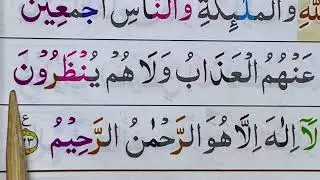 لّٰهِ وَالْمَلٰٓئِكَةِ وَالنَّاسِ اَجْمَعِيْنَ
عَنْهُمُ الْعَذَابُ وَلَا هُمْ يُنْظَرُوْنَ
لَآ اِلٰهَ اِلَّا هُوَ الرَّحْمٰنُ الرَّحِيْمُ